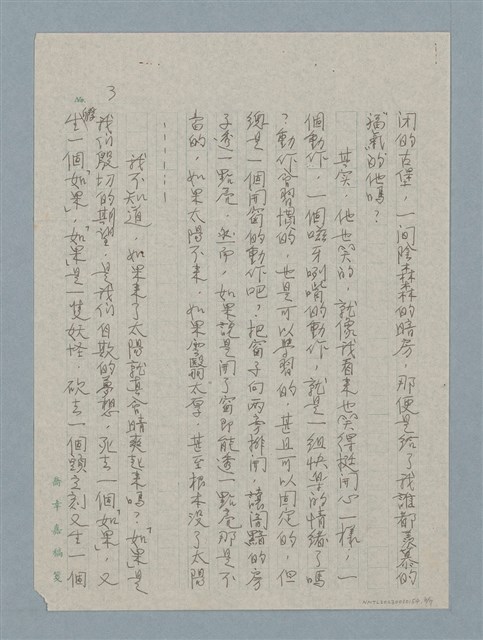 3
閉的古堡，一间陰森森的暗房，那便是给了我誰都羨慕的
福氣的他嗎？
其实，他也笑的，就像我看来也笑得挺開心一樣，一
個動作，一個呲牙咧嘴的動作，就是一组快樂的情緒了嗎
？動作会習慣的，也是可以練習的，甚且可以固定的，但
總是一個開窗的動作吧？把窗子向两旁排開，讓闇黯的房
子透一點亮，然而，如果說是開了窗即能透一點亮那是不
盲的，如果太陽不来，如果雲翳太厚，甚至根本没了太陽
－－－－－
我不知道，如果来了太陽就真会晴爽起来嗎？「如果」是
我們殷切的期望，是我們自欺的夢想，死去一個「如果」，又
生一個「如果」，「如果」是一隻妖怪，砍去一個頭立刻又生一個
喬幸嘉稿箋